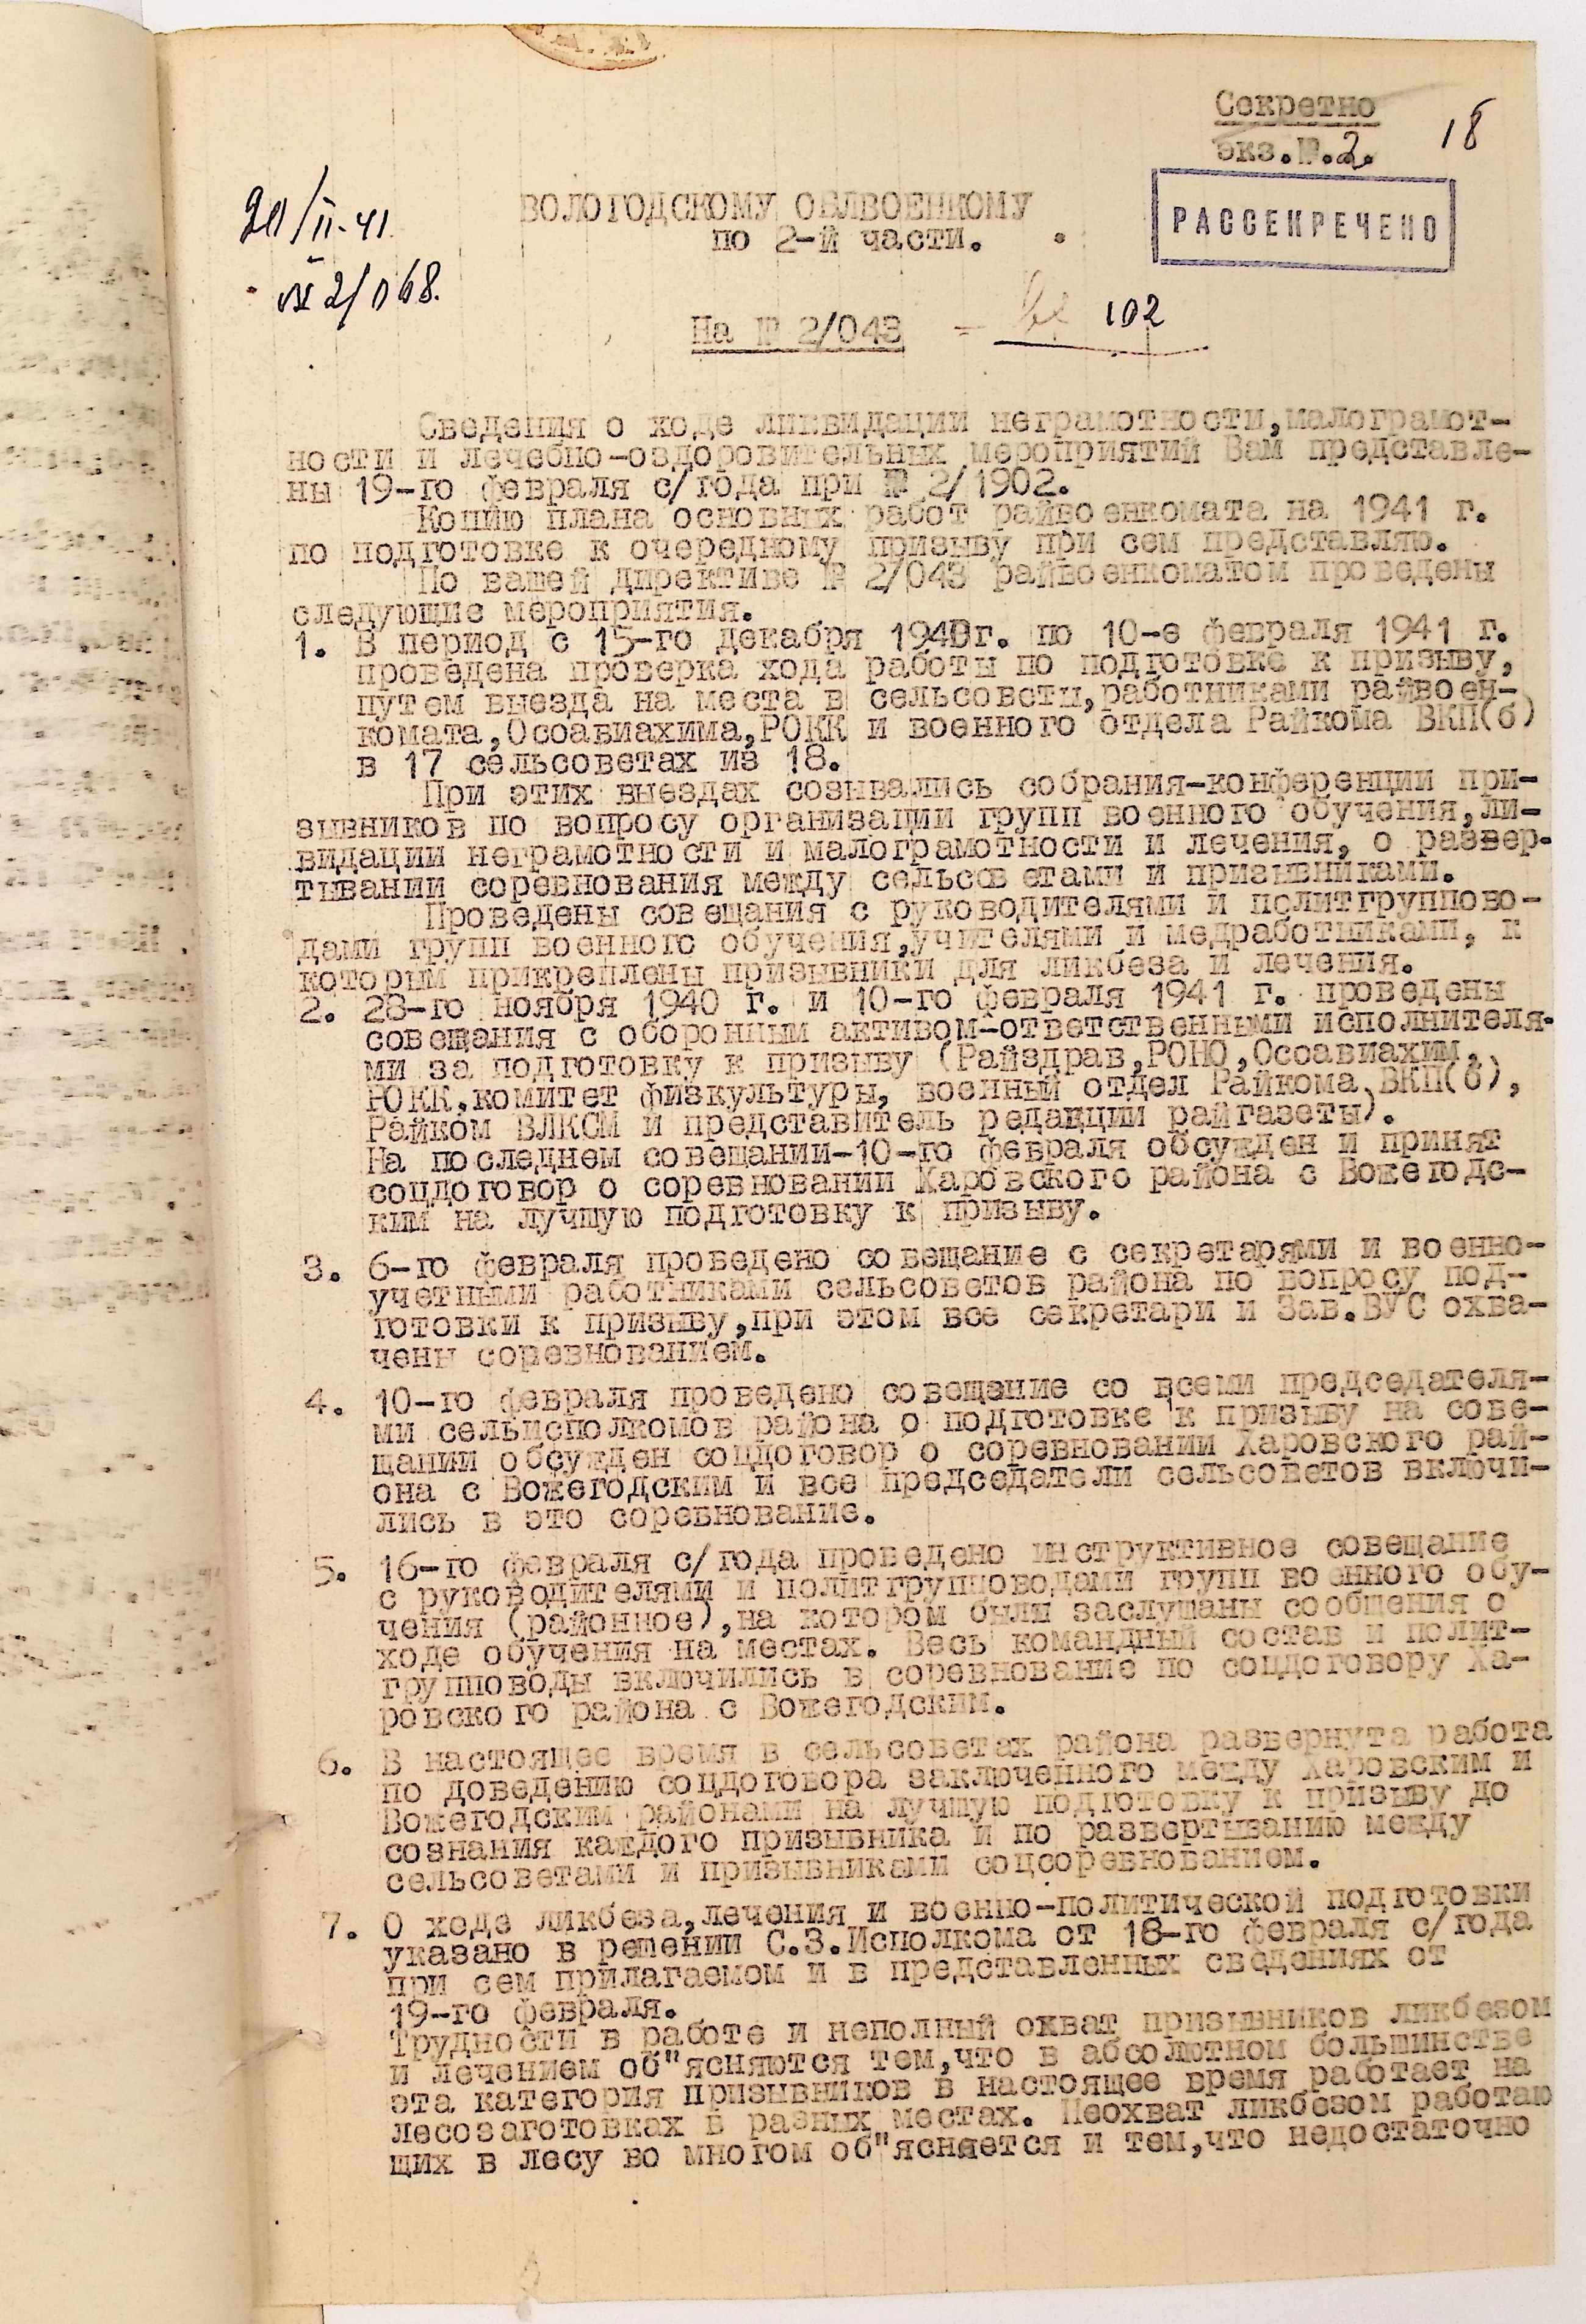 Секретно
экз.№.2.
18
РАССЕКРЕЧЕНО
20/II-41
№ 2/068.
ВОЛОГОДСКОМУ ОБЛВОЕНКОМУ
по 2-й части.
На № 2/043 -
102
Сведения о ходе ликвидации неграмотности,малограмот-
ности и лечебно-оздоровительных мероприятий Вам представле-
ны 19-го февраля с/года при № 2/1902.
Копию плана основных работ райвоенкомата на 1941 г.
по подготовке к очередному призыву при сем представляю.
По вашей директиве № 2/043 райвоенкоматом проведены
следующие мероприятия.
1. В период с 15-го декабря 1940г. по 10-е февраля 1941 г.
проведена проверка хода работы по подготовке к призыву,
путем выезда на места в сельсоветы,работниками райвоен-
комата,Осоавиахима,РОКК и военного отдела Райкома ВКП(б)
в 17 сельсоветах из 18.
При этих выездах созывались собрания-конференции при-
зывников по вопросу организации групп военного обучения,ли-
видации неграмотности и малограмотности и лечения, о развер-
тывании соревнования между сельсоветами и призывниками.
Проведены совещания с руководителями и политгруппово-
дами групп военного обучения,учителями и медработниками, к
которым прикреплены призывники для ликбеза и лечения.
2. 28-го ноября 1940 г. и 10-го февраля 1941 г. проведены
совещания с оборонным активом-ответственными исполнителя-
ми за подготовку к призыву (Райздрав,РОНО,Осоавиахим,
РОКК,комитет физкультуры, военный отдел Райкома ВКП(б),
Райком ВЛКСМ и представитель редакции райгазеты).
На последнем совещании-10-го февраля обсужден и принят
соцдоговор о соревновании Харовского района с Вожегодс-
ким на лучшую подготовку к призыву.
3. 6-го февраля проведено совещание с секретарями и военно-
учетными работниками сельсоветов района по вопросу под-
готовки к призыву,при этом все секретари и Зав.ВУС охва-
чены соревнованием.
4. 10-го февраля проведено совещание со всеми председателя-
ми сельисполкомов района о подготовке к призыву на сове-
щании обсужден соцдоговор о соревновании Харовского рай-
она с Вожегодским и все председатели сельсоветов включи-
лись в это соревнование.
5. 16-го февраля с/года проведено инструктивное совещание
с руководителями и политгрупповодами групп военного обу-
чения (районное),на котором были заслушаны сообщения о
ходе обучения на местах. Весь командный состав и полит-
групповоды включились в соревнование по соцдоговору Ха-
ровского района с Вожегодским.
6. В настоящее время в сельсоветах района развернута работа
по доведению соцдоговора заключенного между Харовским и
Вожегодским районами на лучшую подготовку к призыву до
сознания каждого призывника и по развертыванию между
сельсоветами и призывниками соцсоревнованием.
7. О ходе ликбеза,лечения и военно-политической подготовки
указано в решении С.З.Исполкома от 18-го февраля с/года
при сем прилагаемом и в представленных сведениях от
19-го февраля.
Трудности в работе и неполный охват призывников ликбезом
и лечением об"ясняются тем,что в абсолютном большинстве
эта категория призывников в настоящее время работает на
лесозаготовках в разных местах. Неохват ликбезом работаю
щих в лесу во многом об"ясняется и тем,что недостаточно